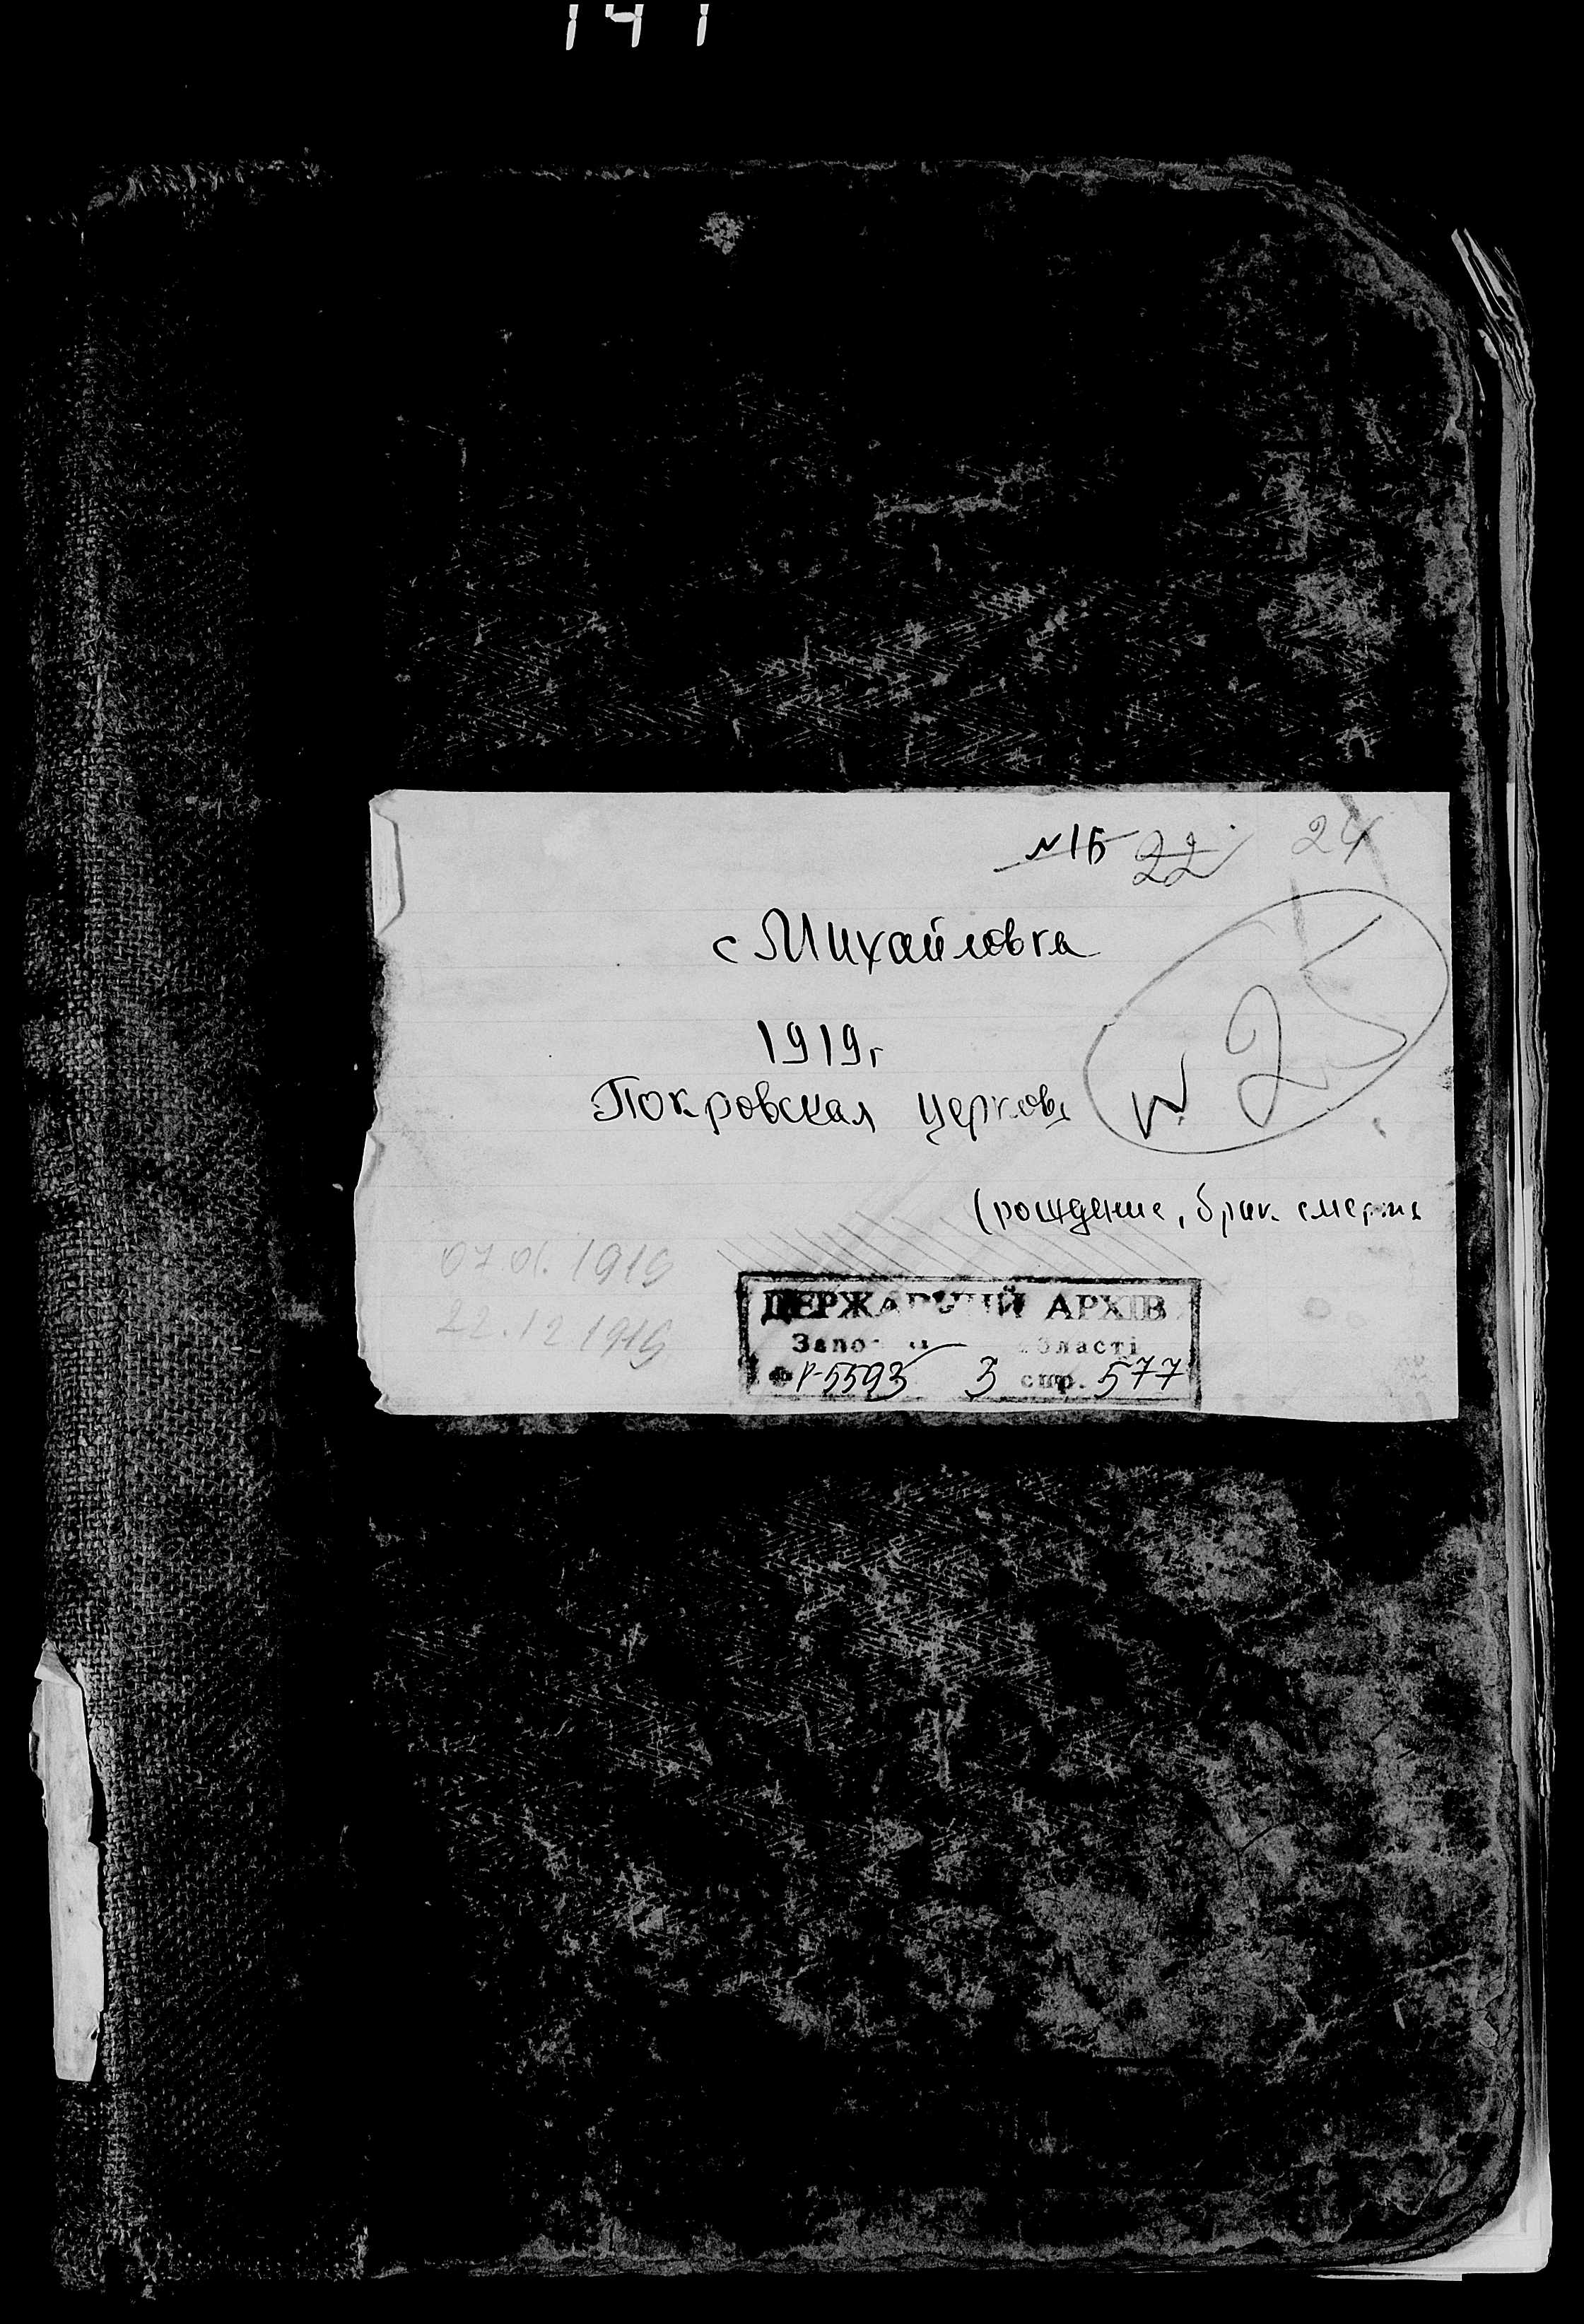 141
№15 22 24
с Михайловка
1919г
Покровская церковь
№ 25
(рождение, брак смерть
07.01.1919
22.12 1919
ДЕРЖАВНИЙ АРХІВ
області
Ф Р-5593 3 спр. 577